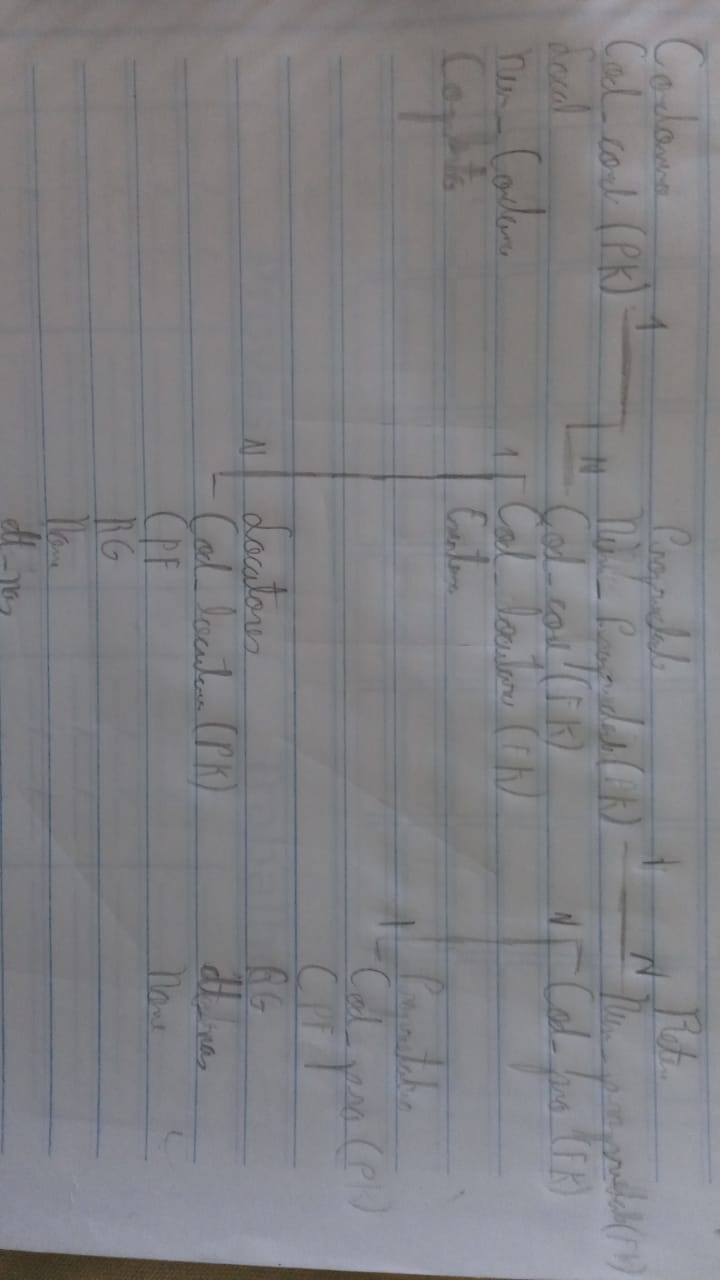 Condomino
Cod_cond (PK)
Local
num_Condom
1
N
Propriedade
Num_Propriedade (PK)
Cod_cod (FK)
Cod_locatare (FK)
1
N
Locatores
Cod_locatore (PK)
CPF
RG
Nome
dt_nas
1 N
Num_propriedade (FK)
Cod_pro (FK)
N
1
Proprietatio
Cod_pro (PK)
CPF
RG
dt_nas
Nome